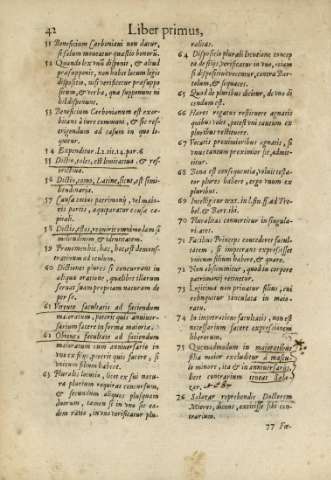 42
Liber primus,
51 Beneficium Carboniani non datur,
si solum moueatur quæstio bonorũ.
52 Quando lex vnũ disponit, & aliud
præsupponit, non habet locum legis
dispositio, nisi verificetur præsuppo
situm, & verba, quæ supponunt ni
hil disponunt.
53 Beneficium Carbonianum est exor-
bitans à iure communi, & sic re-
stringendum ad casum in quo lo-
quitur.
54 Expenditur l.
55 Dictio, toties, est limitatiua, & re-
strictiua.
56 Dictio, tamo, Latine, sicut, est simi-
litudinaria.
57 Causa totius patrimonij, vel maio-
ris partis, æquiparatur causæ ca-
pitali.
58 Dictio, etsi, requirit omnimodam si
militudinem & identitatem.
59 Pronomen, hic, hæc, hoc, est demonst-
ratiuum ad oculum.
60 Dictiones plures si concurrant in
aliqua oratione, quælibet illarum
seruat suam propriam naturam de
per se.
61 Virtute facultatis ad faciendum
maioratum, poterit quis anniuer-
sarium facere in forma maioriæ.
62 Obtenta facultate ad faciendum
maioratum cum anniuersario in
vxor, poterit quis facere, si
vnicum filium habeat.
63 Pluralis locutio, licet ex sui natu-
ra pluriũm requirat concursum,
& secundum aliquos plusquam
duorum, tamen si in vno sit ea-
dem ratio, in vno verificatur plu-
ralitas.
64 Dispositio plurali locutione concep
ta de filijs, verificatur in vno, etiam
si dispositiuè vocentur, contra Bar-
tolum, & sequaces.
65 Quod de pluribus dicitur, de vno di
cendum est.
66 Hæres rogatus restituere agnatis
quibus volet, potest vni tantum ex
pluribus restituere.
67 Vocatis proximioribus agnatis, si
vnus tantum proximior sit, admit-
titur.
68 Bona est consequentia, volui testa-
tor plures habere, ergo vnum ex
pluribus.
69 Intelligitur text. in l. ff. ad Tre-
bel. & Bart. ibi.
70 Pluralitas conuertitur in singula-
ritatem.
71 Facilius Princeps concederet facul-
tatem, si impetrans expressisset
vnicum filium habere, & quare.
72 Non est distinctum, quod in corpore
patrimonij retinetur.
73 Legitima non priuatur filius, cui
relinquitur vtrculata in maio-
ratu.
74 In impetratione facultatis, non est
necessarium facere expressionem
liberorum.
75 Quemadmodum in maioratibus
filia maior excluditur à mascu-
lo minore, ita & in anniuersarijs,
licet contrarium teneat Sala-
zar.
76 Salazar reprehendit Doctorem
Mieres, dicens, extitisse sibi con-
trarium.
77 Fit-